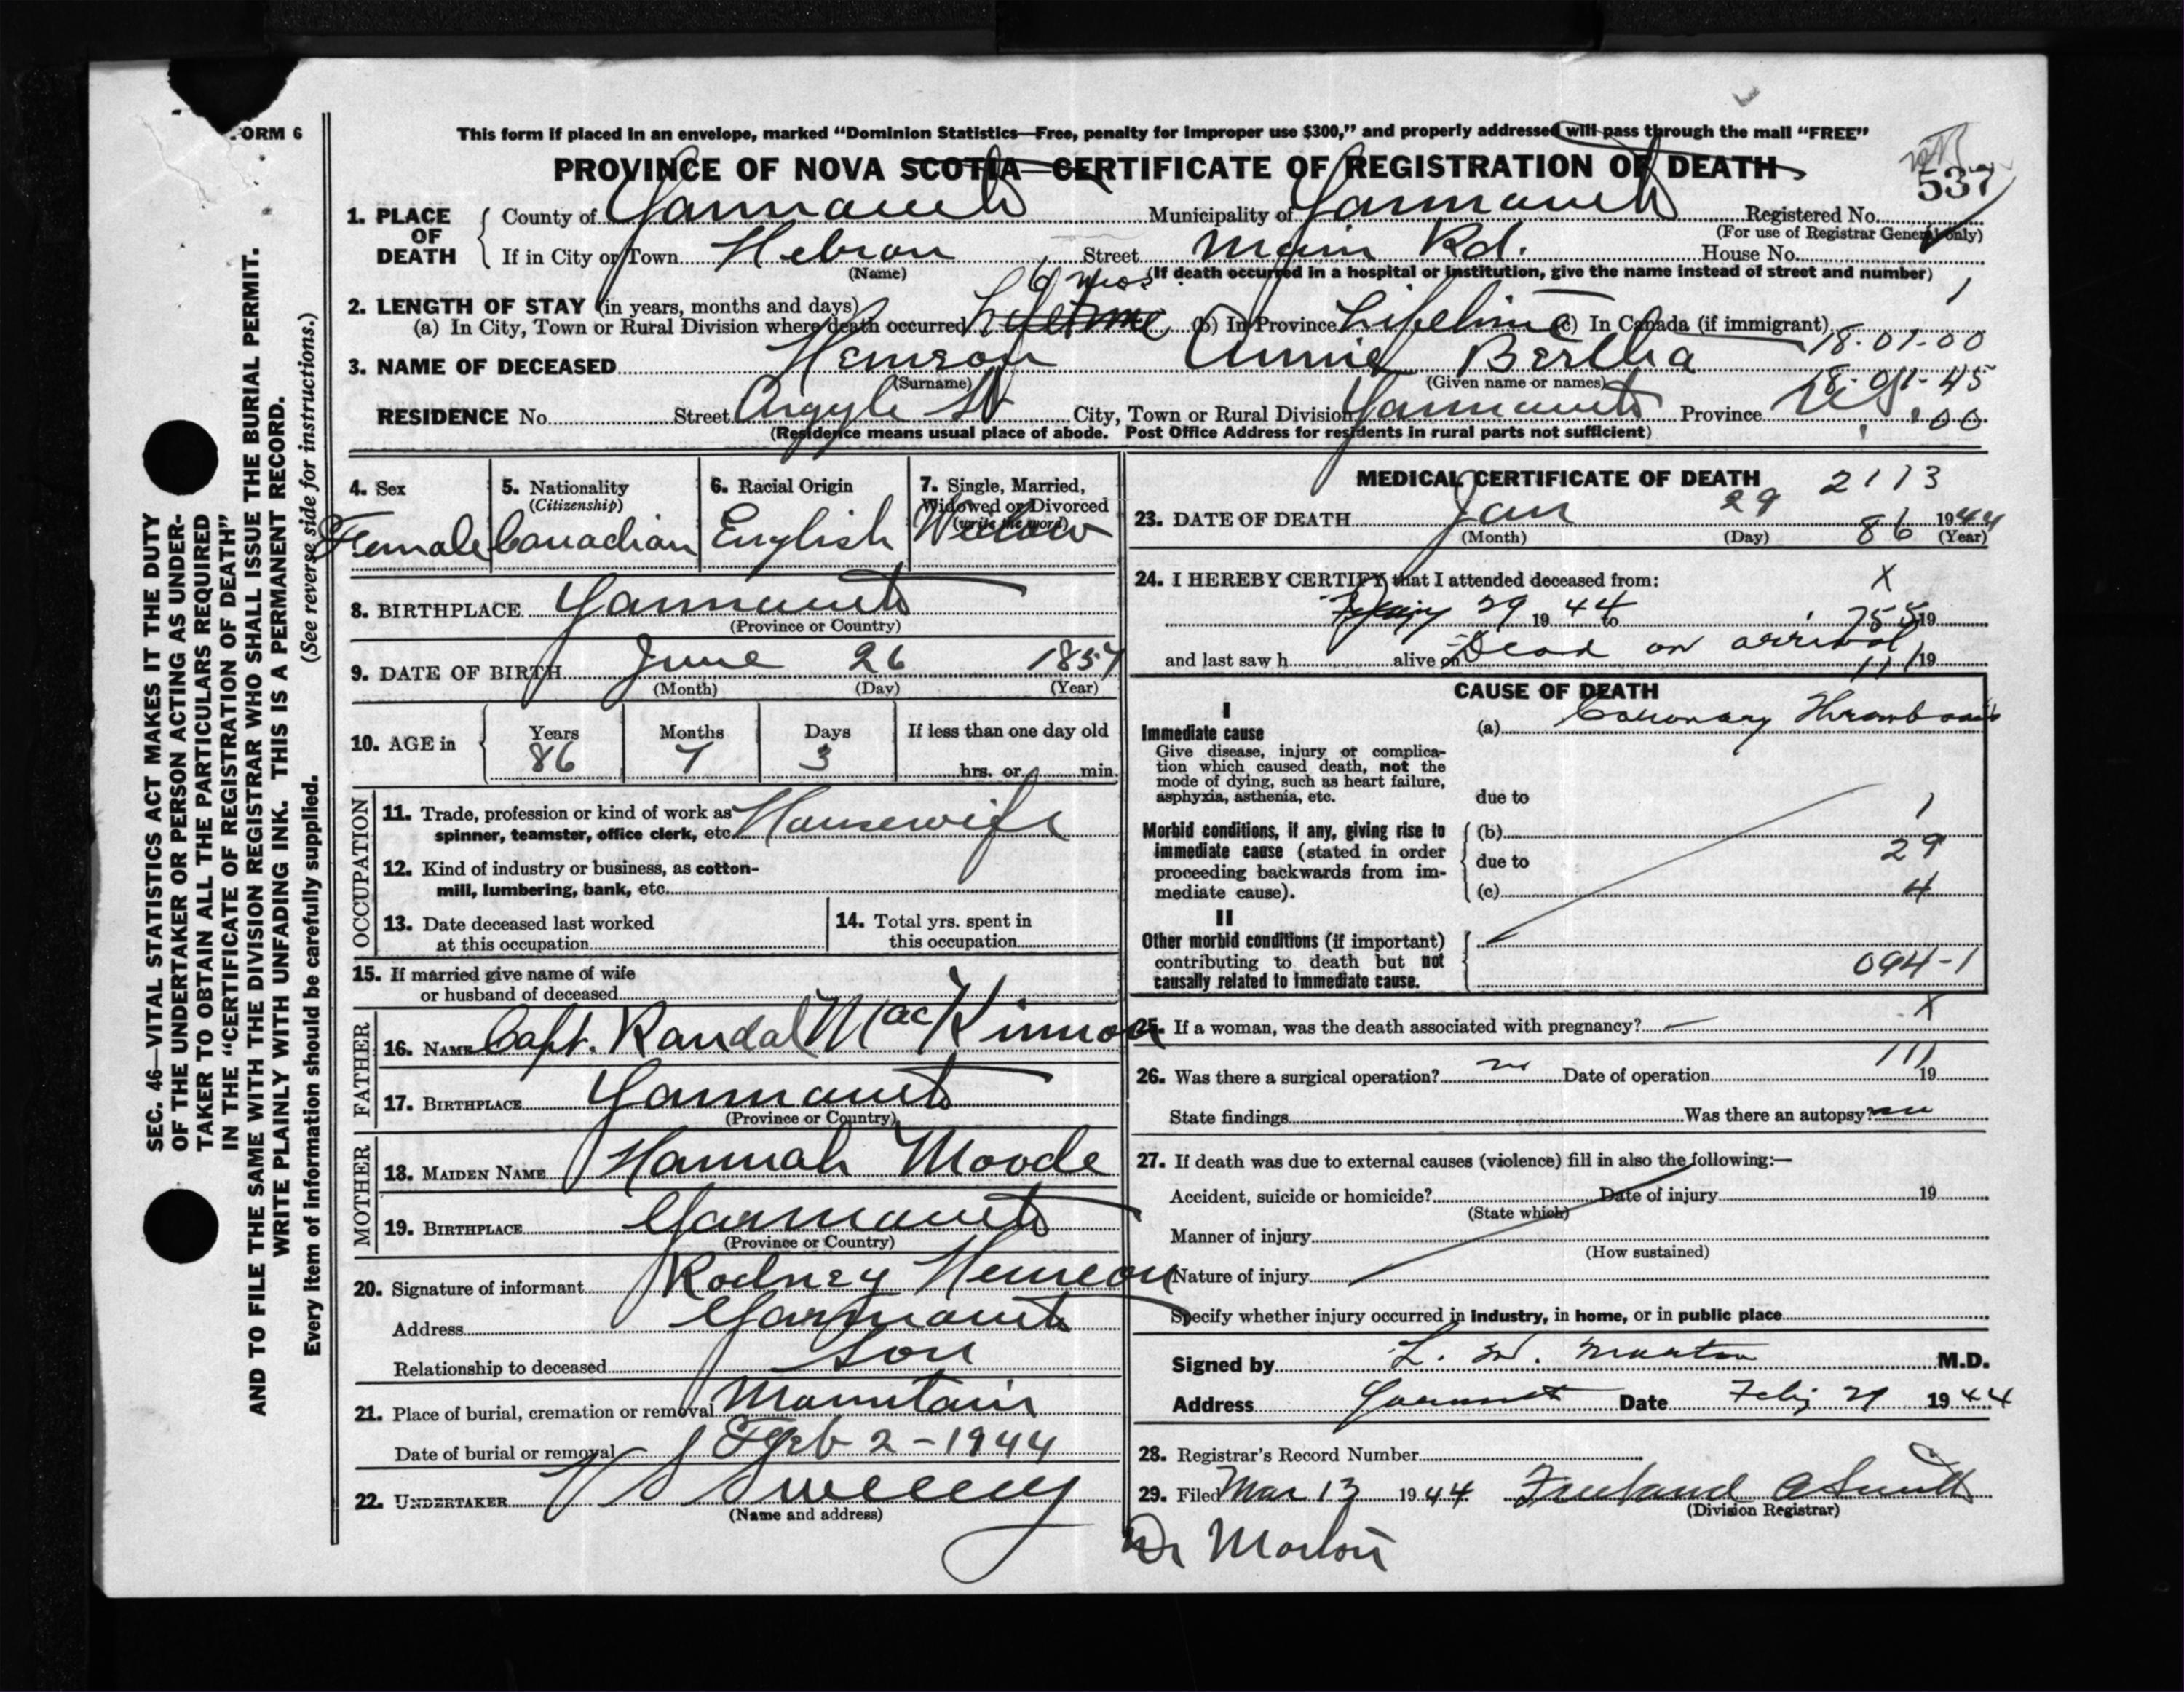 FORM 6
This form if placed in an envelope, marked "Dominion Statistics—Free, penalty for improper use $300," and properly addressed will pass through the mail "FREE"
PROVINCE OF NOVA SCOTIA—CERTIFICATE OF REGISTRATION OF DEATH
537
1. PLACE OF DEATH County of Yarmouth Municipality of Yarmouth Registered No.
(For use of Registrar General only)
If in City or Town Hebron Street Main Rd. House No.
(Name) (If death occurred in a hospital or institution, give the name instead of street and number)
2. LENGTH OF STAY (in years, months and days) 6 mos. 1
(a) In City, Town or Rural Division where death occurred Lifetime (b) In Province Lifetime (c) In Canada (if immigrant)
18-01-00
3. NAME OF DECEASED Hemeon Annie Bertha
(Surname) (Given name or names)
18-01-45
RESIDENCE No. Street Argyle St City, Town or Rural Division Yarmouth Province N.S. 00
(Residence means usual place of abode. Post Office Address for residents in rural parts not sufficient)
4. Sex 5. Nationality 6. Racial Origin 7. Single, Married,
(Citizenship) Widowed or Divorced
(write the word)
Female Canadian English Widow
8. BIRTHPLACE Yarmouth
(Province or Country)
9. DATE OF BIRTH June 26 1857
(Month) (Day) (Year)
10. AGE in Years Months Days If less than one day old
86 7 3 hrs. or min.
OCCUPATION
11. Trade, profession or kind of work as
spinner, teamster, office clerk, etc. Housewife
12. Kind of industry or business, as cotton-
mill, lumbering, bank, etc.
13. Date deceased last worked
at this occupation
14. Total yrs. spent in
this occupation
15. If married give name of wife
or husband of deceased
FATHER
16. NAME Capt. Randal MacKinnon
17. BIRTHPLACE Yarmouth
(Province or Country)
MOTHER
18. MAIDEN NAME Hannah Moode
19. BIRTHPLACE Yarmouth
(Province or Country)
20. Signature of informant Rodney Hemeon
Address Yarmouth
Relationship to deceased Son
21. Place of burial, cremation or removal Mountain
Date of burial or removal Feb 2-1944
22. UNDERTAKER V S Sweeney
(Name and address)
MEDICAL CERTIFICATE OF DEATH 2113
23. DATE OF DEATH Jan 29 86 1944
(Month) (Day) (Year)
24. I HEREBY CERTIFY that I attended deceased from: X
29 1944 to 19
and last saw h alive on Dead on arrival 19
CAUSE OF DEATH
I
Immediate cause
Give disease, injury or complica-
tion which caused death, not the
mode of dying, such as heart failure,
asphyxia, asthenia, etc.
(a) Coronary Thrombosis
due to
1
Morbid conditions, if any, giving rise to
immediate cause (stated in order
proceeding backwards from im-
mediate cause).
(b)
due to 29
(c) 4
II
Other morbid conditions (if important)
contributing to death but not
causally related to immediate cause.
094-1
25. If a woman, was the death associated with pregnancy? — X
26. Was there a surgical operation? no Date of operation 19
State findings Was there an autopsy? no
27. If death was due to external causes (violence) fill in also the following:—
Accident, suicide or homicide? Date of injury 19
(State which)
Manner of injury
(How sustained)
Nature of injury
Specify whether injury occurred in industry, in home, or in public place
Signed by L. M. Morton M.D.
Address Yarmouth Date 29 1944
28. Registrar's Record Number
29. Filed Mar 13 1944 Freeland A Smith
(Division Registrar)
Dr Morton
SEC. 46—VITAL STATISTICS ACT MAKES IT THE DUTY
OF THE UNDERTAKER OR PERSON ACTING AS UNDER-
TAKER TO OBTAIN ALL THE PARTICULARS REQUIRED
IN THE "CERTIFICATE OF REGISTRATION OF DEATH"
AND TO FILE THE SAME WITH THE DIVISION REGISTRAR WHO SHALL ISSUE THE BURIAL PERMIT.
WRITE PLAINLY WITH UNFADING INK. THIS IS A PERMANENT RECORD.
Every item of information should be carefully supplied. (See reverse side for instructions.)